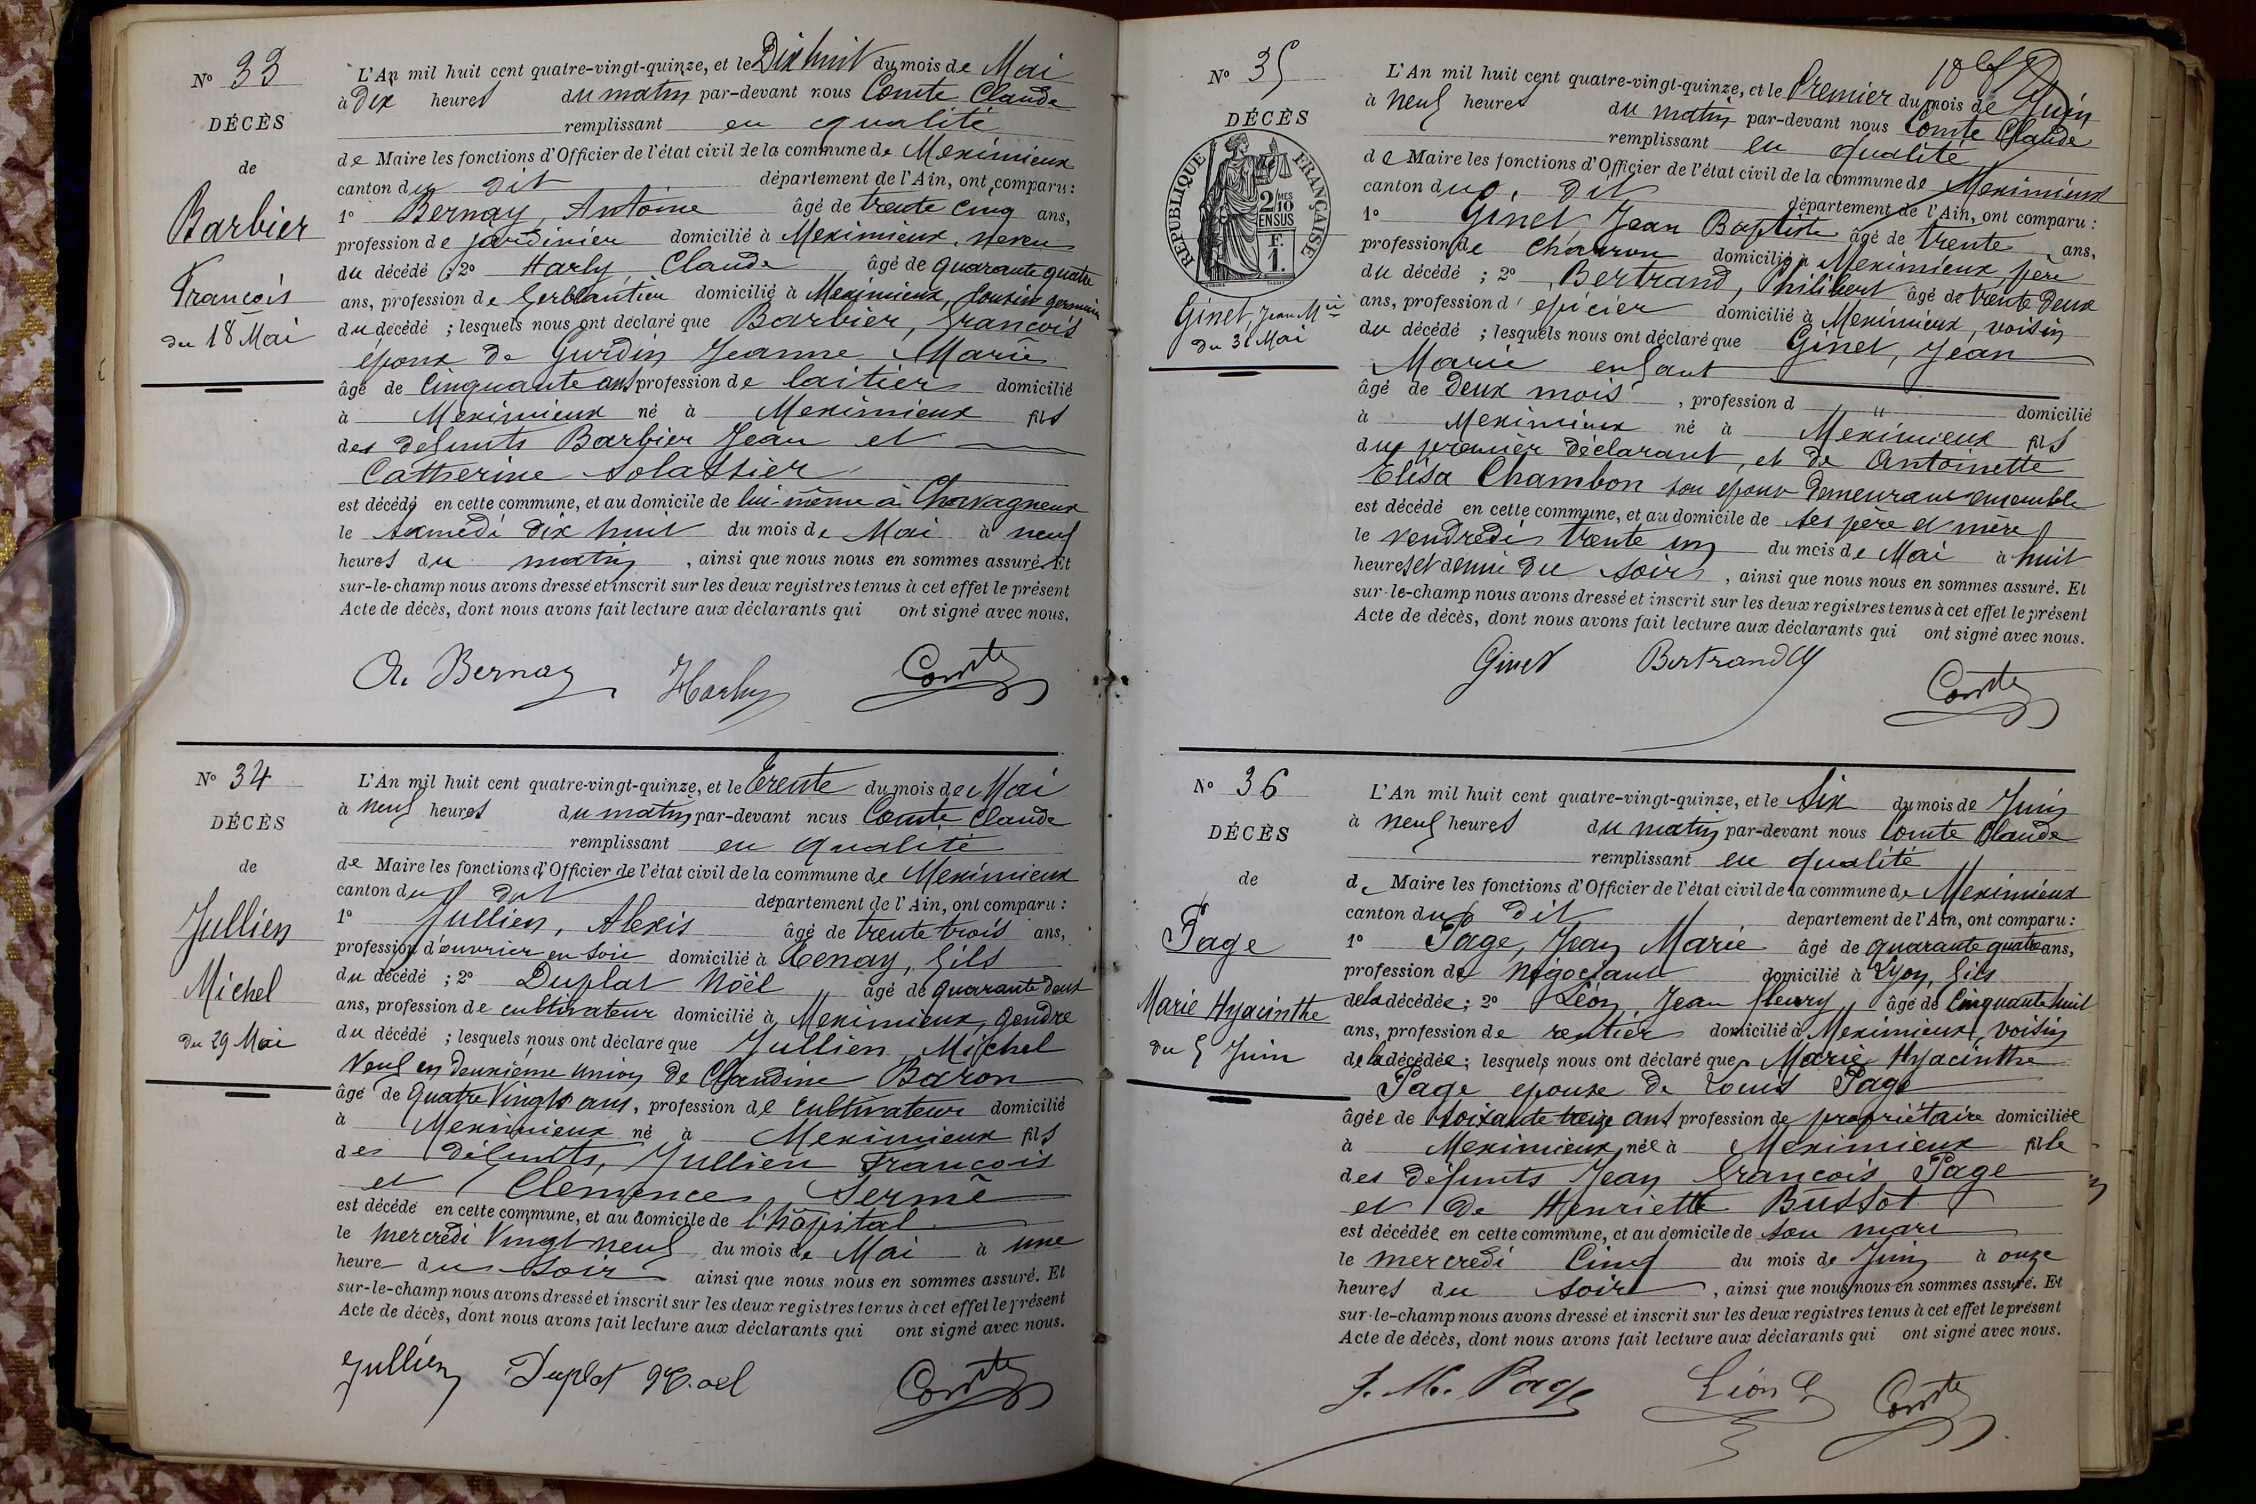 N° 33
DÉCÈS
de
Barbier
François
du 18 Mai
L'An mil huit cent quatre-vingt-quinze, et le Dix huit du mois de Mai
à Dix heures du matin par-devant nous Comte Claude
remplissant en qualité
de Maire les fonctions d'Officier de l'état civil de la commune de Meximieux
canton du dit département de l'Ain, ont comparu :
1° Bernay, Antoine âgé de trente cinq ans,
profession de jardinier domicilié à Meximieux, neveu
du décédé ; 2° Harly, Claude âgé de quarante quatre
ans, profession de ferblantier domicilié à Meximieux, Cousin germain
du décédé ; lesquels nous ont déclaré que Barbier, François
époux de Gurdin Jeanne Marie
âgé de Cinquante ans profession de laitier domicilié
à Meximieux né à Meximieux fils
des défunts Barbier Jean et
Catherine Solassier
est décédé en cette commune, et au domicile de lui-même à Chavagneux
le samedi dix huit du mois de Mai à neuf
heures du matin, ainsi que nous nous en sommes assuré. Et
sur-le-champ nous avons dressé et inscrit sur les deux registres tenus à cet effet le présent
Acte de décès, dont nous avons fait lecture aux déclarants qui ont signé avec nous.
A. Bernay Harly Comte
N° 34
DÉCÈS
de
Jullien
Michel
du 29 Mai
L'An mil huit cent quatre-vingt-quinze, et le Trente du mois de Mai
à neuf heures du matin par-devant nous Comte Claude
remplissant en qualité
de Maire les fonctions d'Officier de l'état civil de la commune de Meximieux
canton du dit département de l'Ain, ont comparu :
1° Jullien, Alexis âgé de trente trois ans,
profession d'ouvrier en soie domicilié à Tenay, fils
du décédé ; 2° Duplat Noël âgé de quarante deux
ans, profession de cultivateur domicilié à Meximieux, gendre
du décédé ; lesquels nous ont déclaré que Jullien Michel
Veuf en deuxième union de Claudine Baron
âgé de Quatre Vingts ans, profession de cultivateur domicilié
à Meximieux né à Meximieux fils
des défunts, Jullien François
et Clemence Sermé
est décédé en cette commune, et au domicile de l'hôpital
le mercredi Vingt neuf du mois de Mai à une
heure du soir ainsi que nous nous en sommes assuré. Et
sur-le-champ nous avons dressé et inscrit sur les deux registres tenus à cet effet le présent
Acte de décès, dont nous avons fait lecture aux déclarants qui ont signé avec nous.
Jullien Duplat Noel Comte
N° 35
DÉCÈS
de
RÉPUBLIQUE FRANÇAISE
2 MES
10
EN SUS
F.
1.
Ginet, Jean Mie
du 31 Mai
L'An mil huit cent quatre-vingt-quinze, et le Premier du mois de Juin
à neuf heures du matin par-devant nous Comte Claude
remplissant en qualité
de Maire les fonctions d'Officier de l'état civil de la commune de Meximieux
canton du dit département de l'Ain, ont comparu :
1° Ginet Jean Baptiste âgé de trente ans,
profession de charron domicilié à Meximieux, père
du décédé ; 2° Bertrand, Philibert âgé de trente deux
ans, profession d'épicier domicilié à Meximieux, voisin
du décédé ; lesquels nous ont déclaré que Ginet, Jean
Marie enfant
âgé de deux mois, profession d " domicilié
à Meximieux né à Meximieux fils
du premier déclarant, et de Antoinette
Elisa Chambon son epouse demeurant ensemble
est décédé en cette commune, et au domicile de ses père et mère
le vendredi trente un du mois de Mai à huit
heures et demie du soir, ainsi que nous nous en sommes assuré. Et
sur-le-champ nous avons dressé et inscrit sur les deux registres tenus à cet effet le présent
Acte de décès, dont nous avons fait lecture aux déclarants qui ont signé avec nous.
Ginet Bertrand Comte
N° 36
DÉCÈS
de
Page
Marie Hyacinthe
du 5 Juin
L'An mil huit cent quatre-vingt-quinze, et le Six du mois de Juin
à neuf heures du matin par-devant nous Comte Claude
remplissant en qualité
de Maire les fonctions d'Officier de l'état civil de la commune de Meximieux
canton du dit département de l'Ain, ont comparu :
1° Page, Jean Marie âgé de quarante quatre ans,
profession de Négociant domicilié à Lyon, fils
de la décédée ; 2° Léon, Jean fleury, âgé de Cinquante huit
ans, profession de rentier domicilié à Meximieux, voisin
de la décédée ; lesquels nous ont déclaré que Marie Hyacinthe
Page epouse de Louis Page
âgée de soixante treize ans profession de propriétaire domiciliée
à Meximieux, née à Meximieux fille
des défunts Jean François Page
et de Henriette Bussot
est décédée en cette commune, et au domicile de son mari
le mercredi Cinq du mois de Juin à onze
heures du soir, ainsi que nous nous en sommes assuré. Et
sur-le-champ nous avons dressé et inscrit sur les deux registres tenus à cet effet le présent
Acte de décès, dont nous avons fait lecture aux déclarants qui ont signé avec nous.
J. M. Page Léon Comte